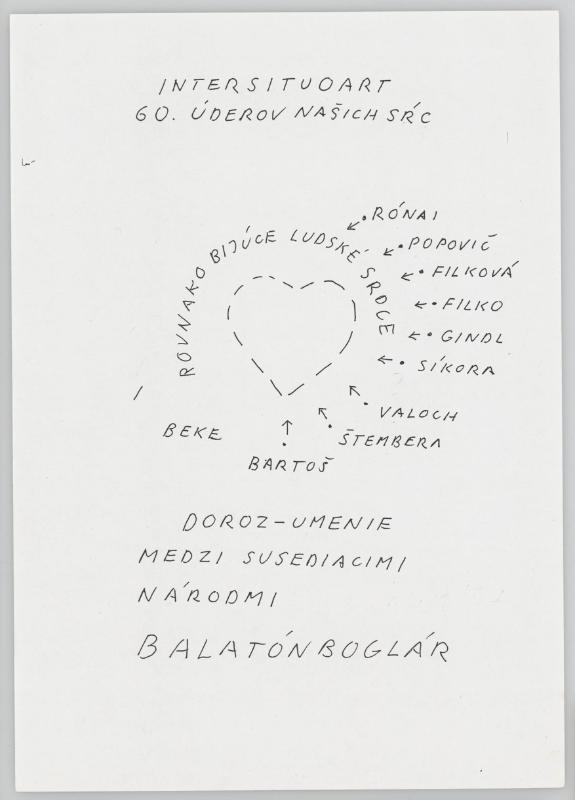 INTERSITUOART
60. ÚDEROV NAŠICH SŔC
ROVNAKO BIJÚCE LUDSKÉ SRDCE
RÓNAI
POPOVIČ
FILKOVÁ
FILKO
GINDL
SÍKORA
VALOCH
ŠTEMBERA
BARTOŠ
BEKE
DOROZ-UMENIE
MEDZI SUSEDIACIMI
NÁRODMI
BALATÓNBOGLÁR